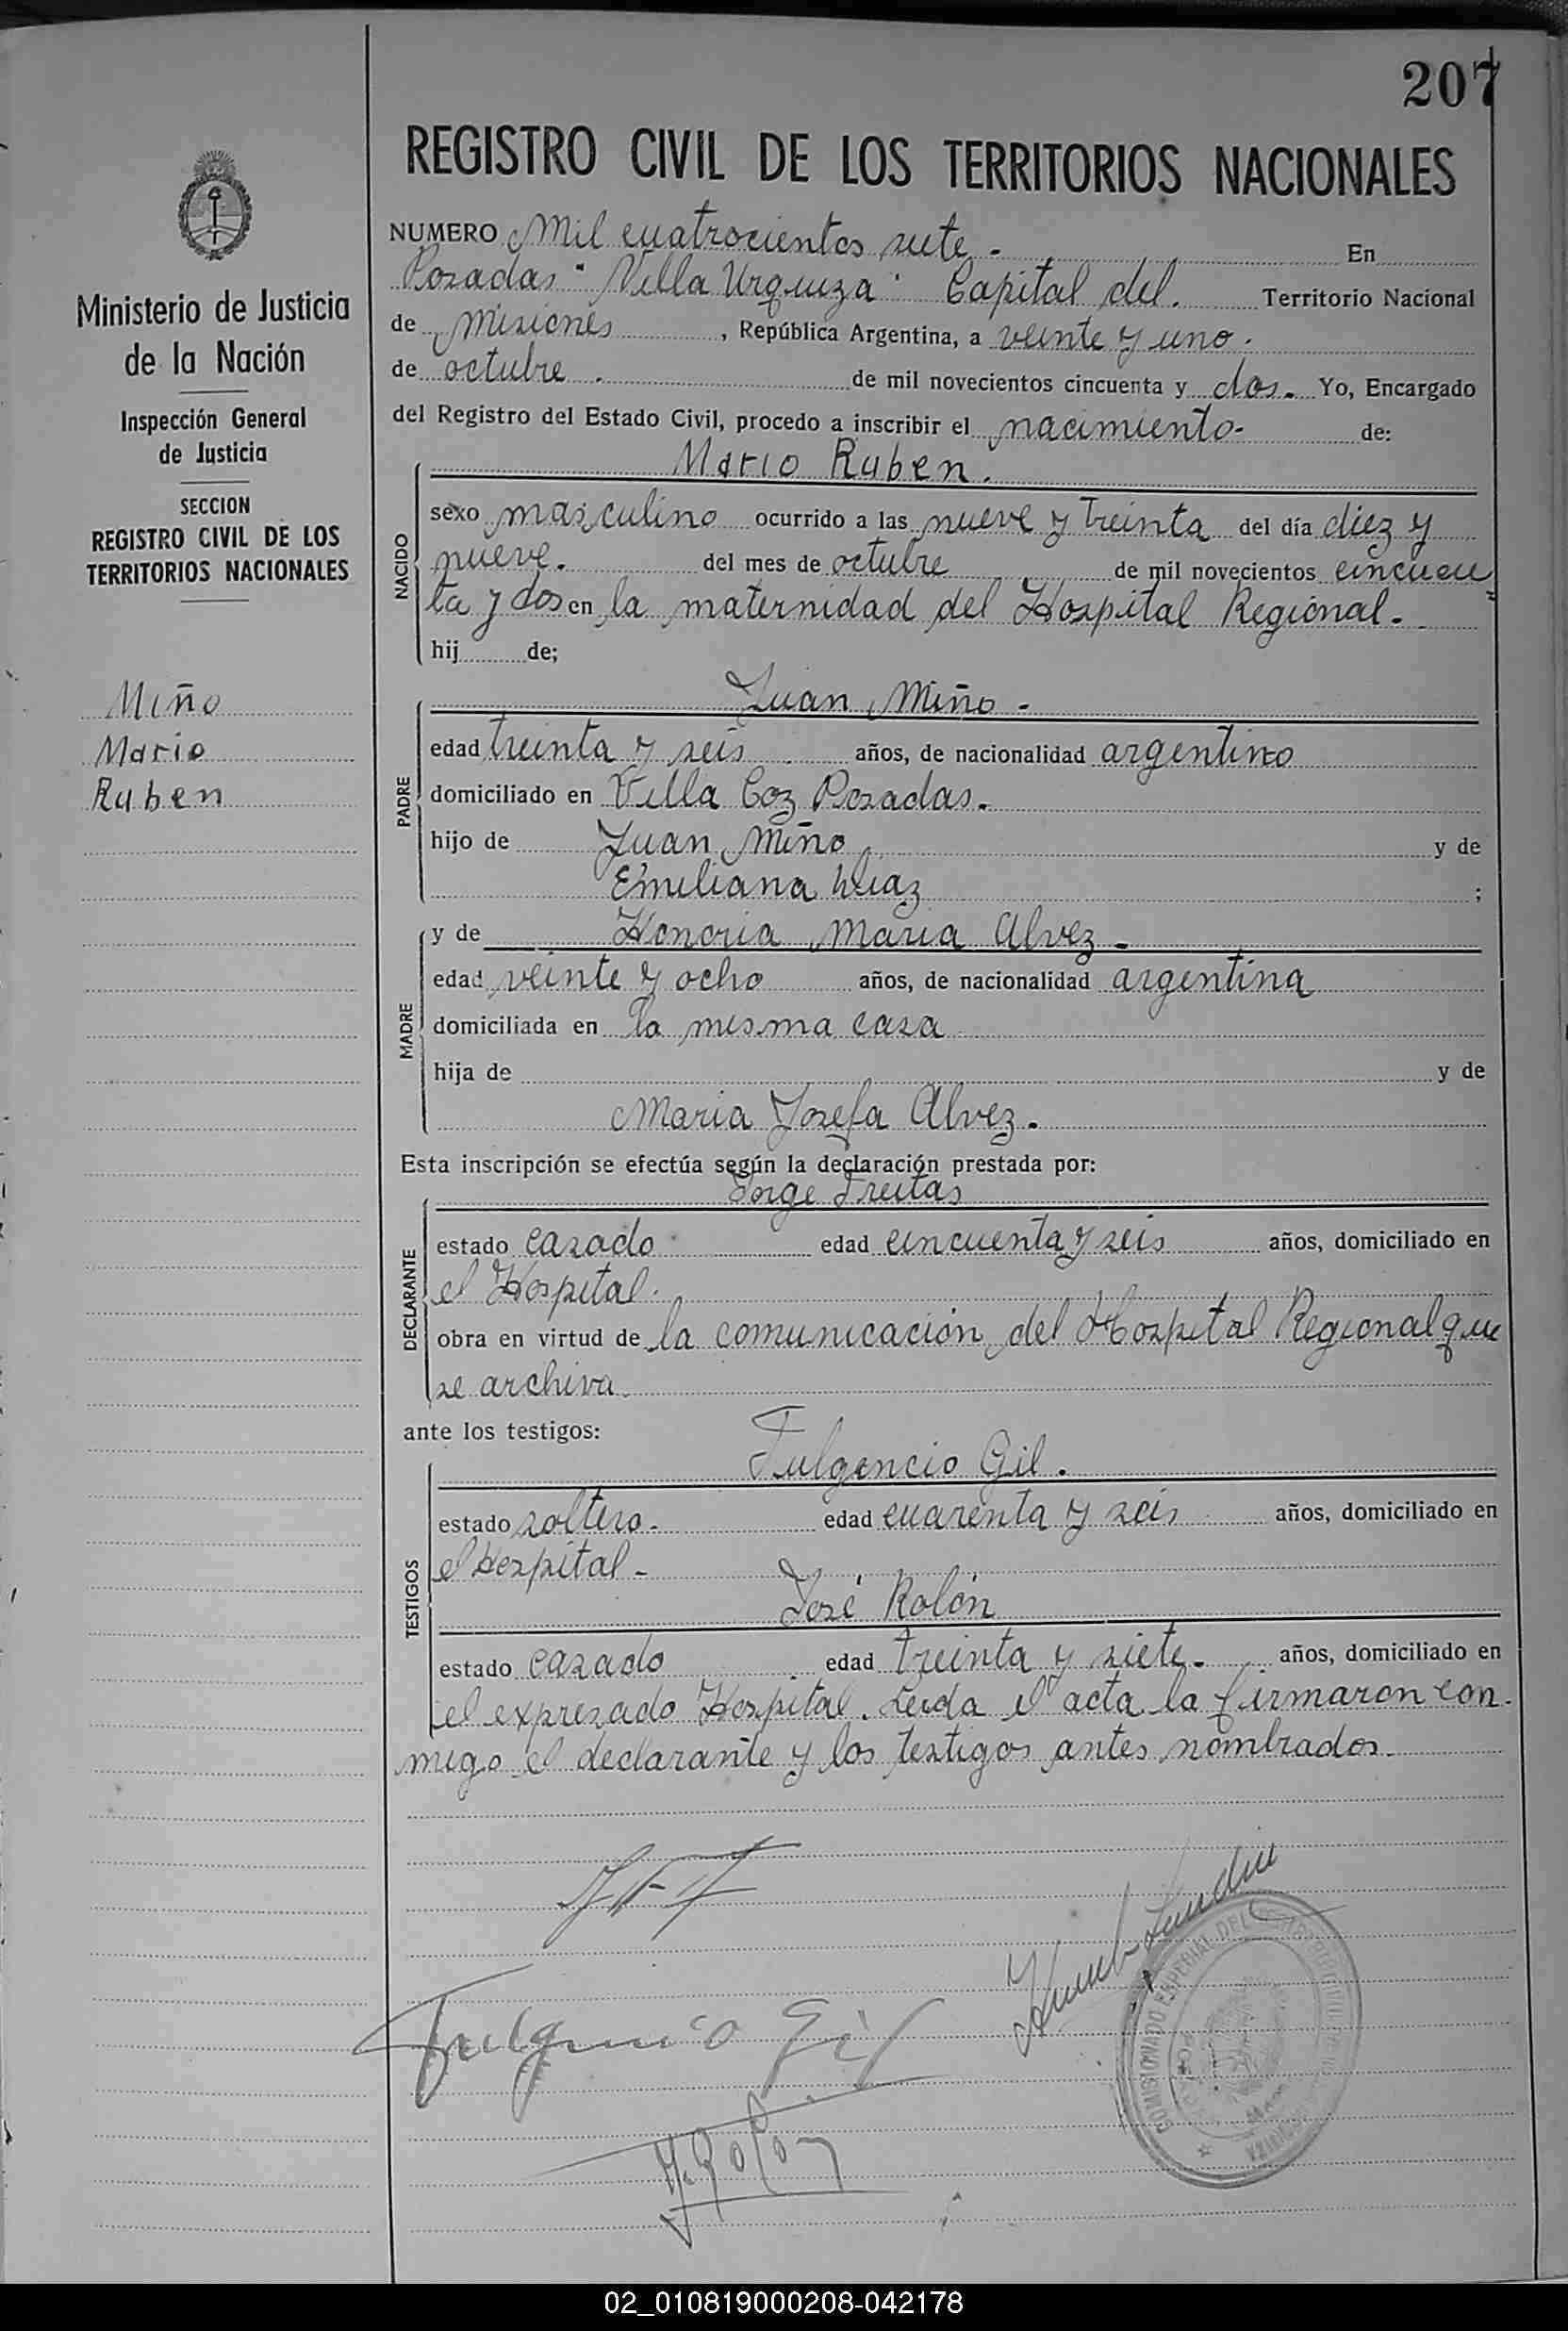 207
REGISTRO CIVIL DE LOS TERRITORIOS NACIONALES
Ministerio de Justicia
de la Nación
Inspección General
de Justicia
SECCION
REGISTRO CIVIL DE LOS
TERRITORIOS NACIONALES
Miño
Mario
Ruben
NUMERO Mil cuatrocientos siete - En
Posadas "Villa Urquiza" Capital del. Territorio Nacional
de Misiones, República Argentina, a veinte y uno.
de octubre. de mil novecientos cincuenta y dos. Yo, Encargado
del Registro del Estado Civil, procedo a inscribir el nacimiento- de:
Mario Ruben.
NACIDO
sexo masculino ocurrido a las nueve y treinta del día diez y
nueve. del mes de octubre de mil novecientos cincuen
ta y dos en la maternidad del Hospital Regional.
hij de;
Juan Miño -
PADRE
edad treinta y seis años, de nacionalidad argentino
domiciliado en Villa Coz Posadas.
hijo de Juan Miño y de
Emiliana Diaz ;
y de Honoria Maria Alvez -
MADRE
edad veinte y ocho años, de nacionalidad argentina
domiciliada en la misma casa
hija de y de
Maria Josefa Alvez.
Esta inscripción se efectúa según la declaración prestada por:
Jorge Freitas
DECLARANTE
estado casado edad cincuenta y seis años, domiciliado en
el Hospital.
obra en virtud de la comunicación del Hospital Regional que
se archiva.
ante los testigos:
Fulgencio Gil.
TESTIGOS
estado soltero. edad cuarenta y seis años, domiciliado en
el Hospital -
José Rolón
estado casado edad treinta y siete. años, domiciliado en
el expresado Hospital. Leida el acta la firmaron con
migo el declarante y los testigos antes nombrados.
Fulgencio Gil
J. Rolon
COMISIONADO ESPECIAL DEL
02_010819000208-042178